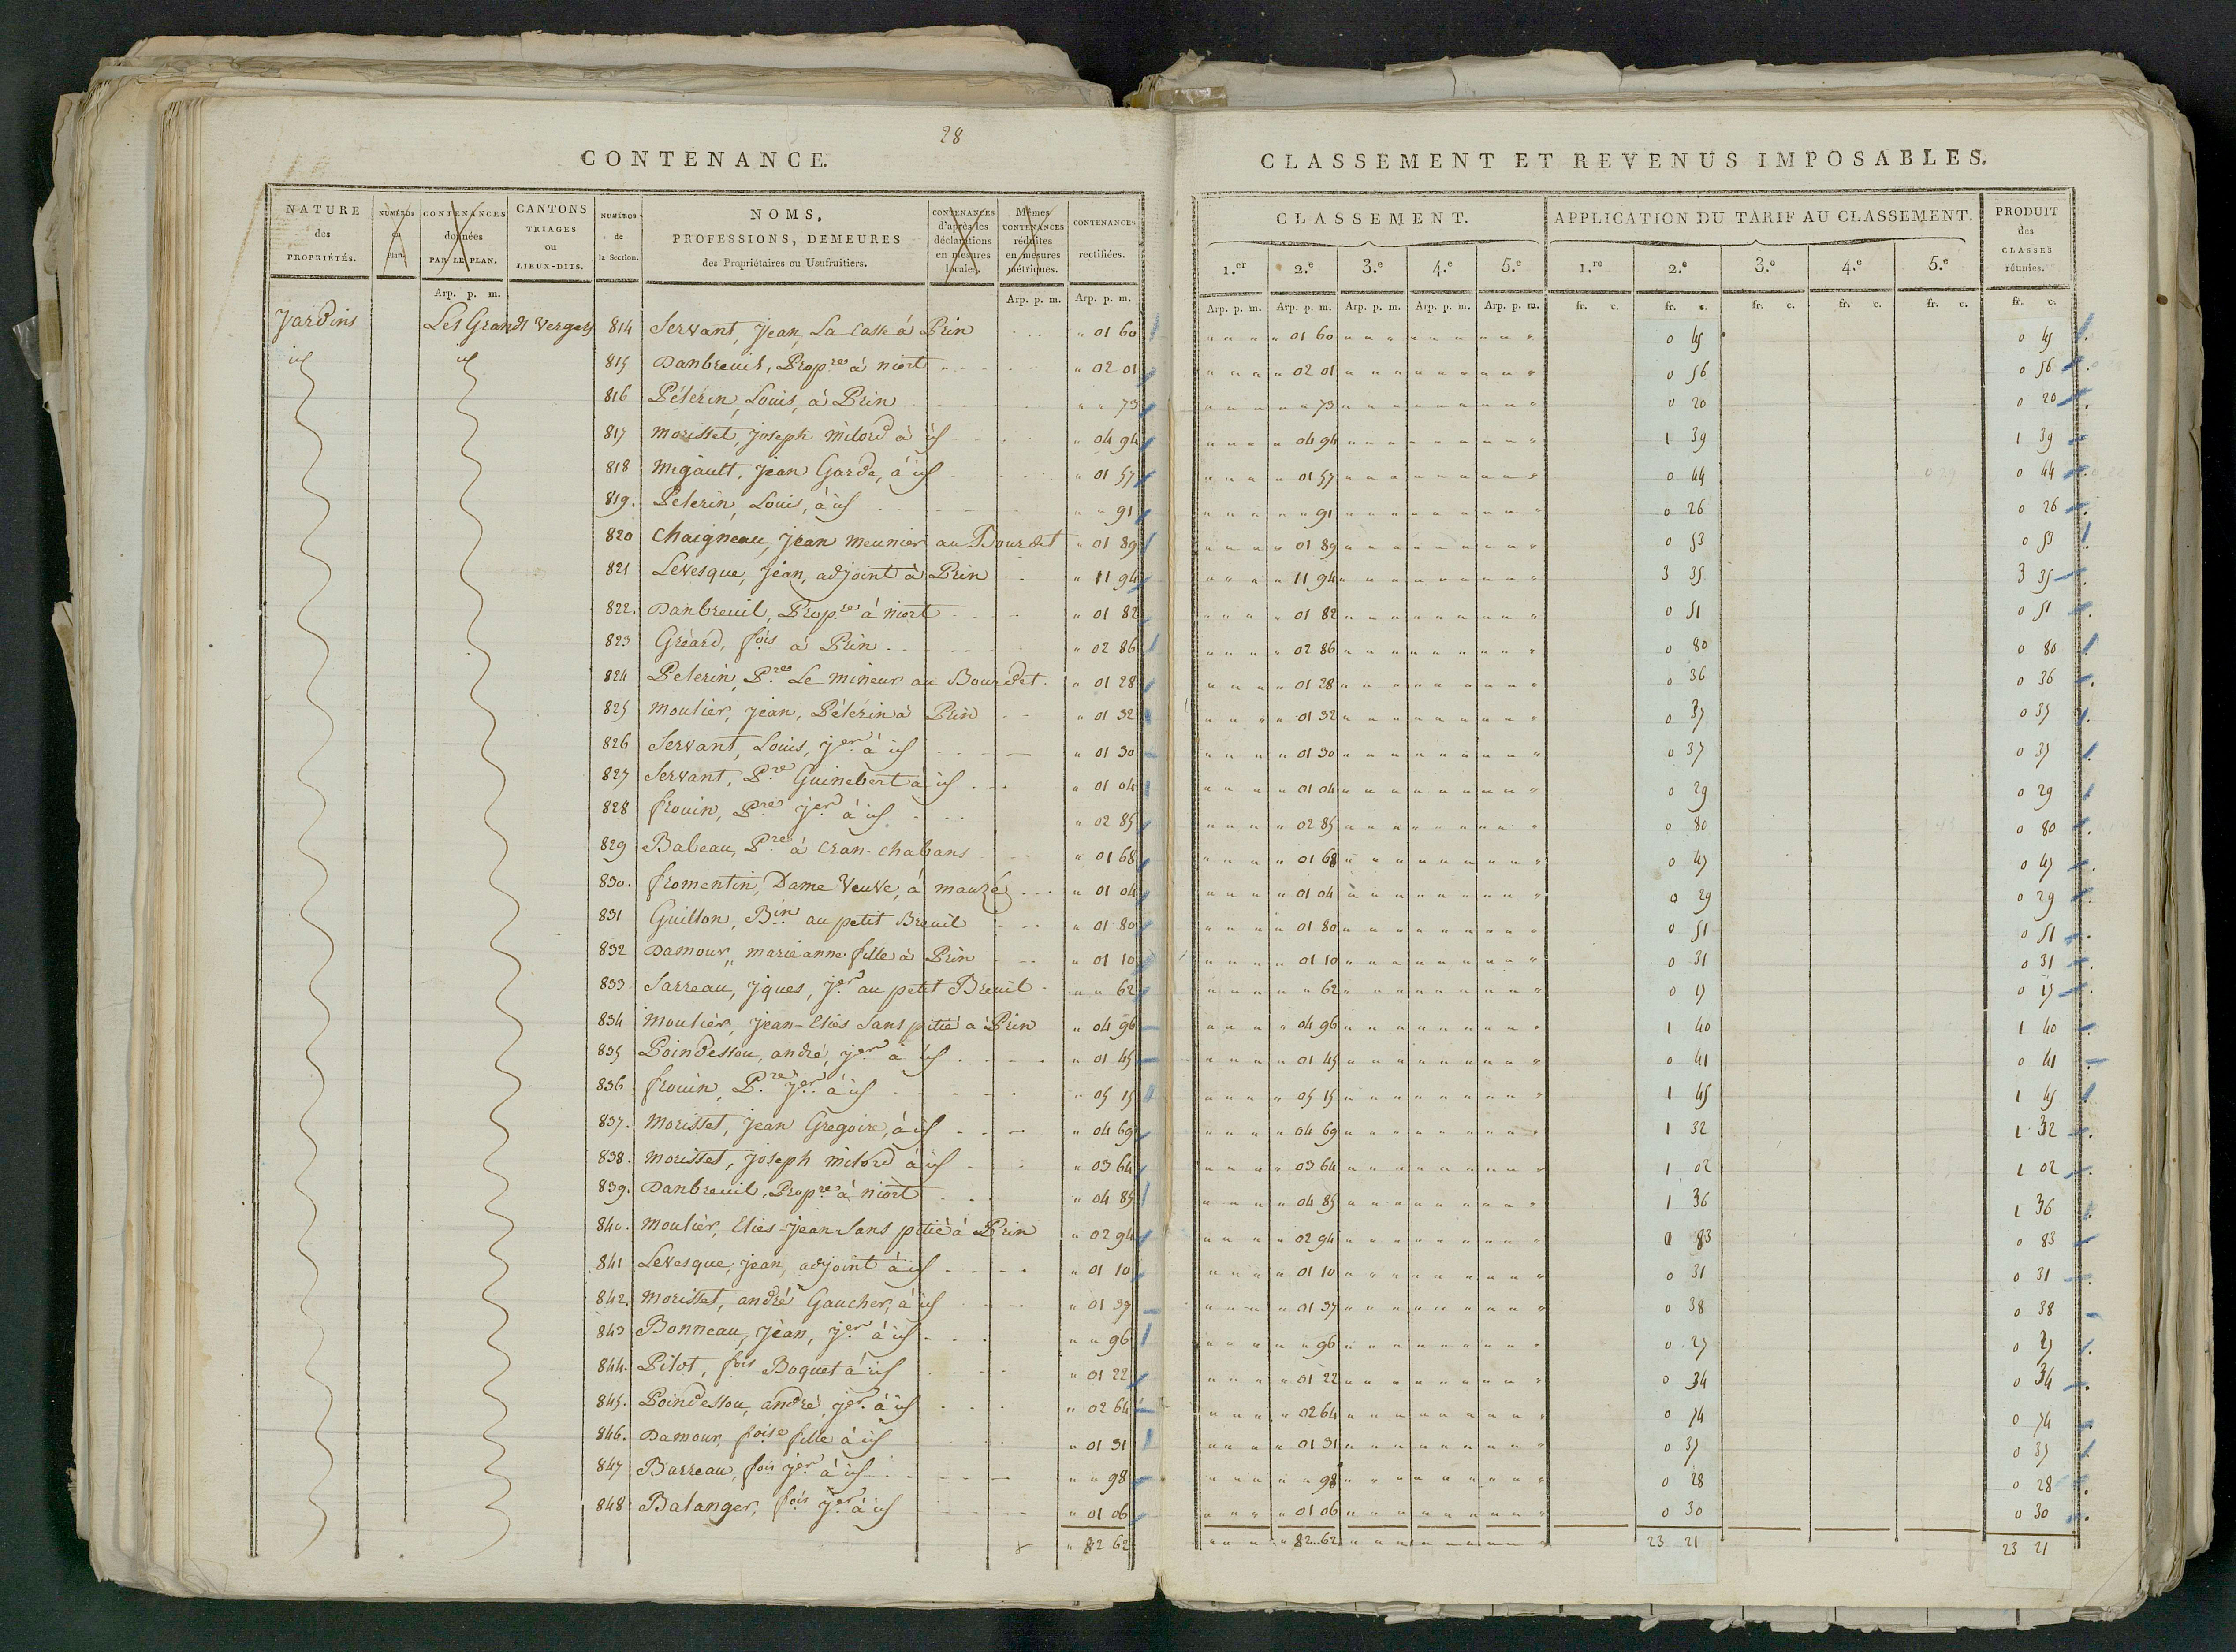 28
CONTENANCE.
NATURE des PROPRIÉTÉS. NUMÉROS du Plan. CONTENANCES données PAR LE PLAN. CANTONS TRIAGES ou LIEUX-DITS. NUMÉROS de la Section. NOMS, PROFESSIONS, DEMEURES des Propriétaires ou Usufruitiers. CONTENANCES d'après les déclarations en mesures locales. Mêmes CONTENANCES réduites en mesures métriques. CONTENANCES rectifiées.
Arp. p. m. Arp. p. m. Arp. p. m.
Jardins Les Grands Vergers 814 Servant, Jean, La Casse à Prin " 01 60
id id 815 Danbreuil, Prop.re à niort " 02 01
816 Pélerin, Louis, à Prin " " 73
817 Morisset, Joseph milord à id " 04 94
818 Migault, Jean Garde, à id " 01 57
819. Pelerin, Louis, à id " " 91
820 Chaigneau, Jean meunier au Bourdet " 01 89
821 Levesque, Jean, adjoint à Prin " 11 94
822. Danbreuil, Prop.re à niort " 01 82
823 Gréard, f.ois à Prin " 02 86
824 Pelerin, P.re Le mineur au Bourdet " 01 28
825 Moulier, Jean, Pélerin à Prin " 01 32
826 Servant, Louis, J.er à id " 01 30
827 Servant, P.re Guinebert à id " 01 04
828 frouin, P.re J.er à id " 02 85
829 Babeau, P.re à Cran-chabans " 01 68
830. fromentin, Dame Veuve, à mauzé " 01 04
831 Guillon, B.in au petit Breuil " 01 80
832 Damour, marie anne fille à Prin " 01 10
833 Sarreau, Jques, J.er au petit Breuil " " 62
834 Moulier, Jean-Elies Sans pitié à Prin " 04 96
835 Poindessou, andré, J.er à id " 01 45
836 frouin, P.re J.er à id " 05 15
837. Morisset, Jean Gregoire, à id " 04 69
838. Morisset, Joseph milord à id " 03 64
839. Danbreuil, Prop.re à niort " 04 85
840. Moulier, Elies-Jean Sans pitié à Prin " 02 94
841 Levesque, Jean, adjoint à id " 01 10
842. Morisset, andré Gaucher, à id " 01 37
843 Bonneau, Jean, J.er à id " " 96
844. Pilot, f.ois Boquet à id " 01 22
845. Poindessou, andré, J.er à id " 02 64
846. Damour, f.oise fille à id " 01 31
847 Barreau, f.ois J.er à id " " 98
848 Balanger, f.ois J.er à id " 01 06
" 82 62
CLASSEMENT ET REVENUS IMPOSABLES.
CLASSEMENT. APPLICATION DU TARIF AU CLASSEMENT. PRODUIT des CLASSES réunies.
1.er 2.e 3.e 4.e 5.e 1.re 2.e 3.e 4.e 5.e
Arp. p. m. Arp. p. m. Arp. p. m. Arp. p. m. Arp. p. m. fr. c. fr. c. fr. c. fr. c. fr. c. fr. c.
" 01 60 0 45 0 45
" 02 01 0 56 0 56
" " 73 0 20 0 20
" 04 94 1 39 1 39
" 01 57 0 44 0 44
" " 91 0 26 0 26
" 01 89 0 53 0 53
" 11 94 3 35 3 35
" 01 82 0 51 0 51
" 02 86 0 80 0 80
" 01 28 0 36 0 36
" 01 32 0 37 0 37
" 01 30 0 37 0 37
" 01 04 0 29 0 29
" 02 85 0 80 0 80
" 01 68 0 47 0 47
" 01 04 0 29 0 29
" 01 80 0 51 0 51
" 01 10 0 31 0 31
" " 62 0 17 0 17
" 04 96 1 40 1 40
" 01 45 0 41 0 41
" 05 15 1 45 1 45
" 04 69 1 32 1 32
" 03 64 1 02 1 02
" 04 85 1 36 1 36
" 02 94 0 83 0 83
" 01 10 0 31 0 31
" 01 37 0 38 0 38
" " 96 0 27 0 27
" 01 22 0 34 0 34
" 02 64 0 74 0 74
" 01 31 0 37 0 37
" " 98 0 28 0 28
" 01 06 0 30 0 30
" 82 62 23 21 23 21